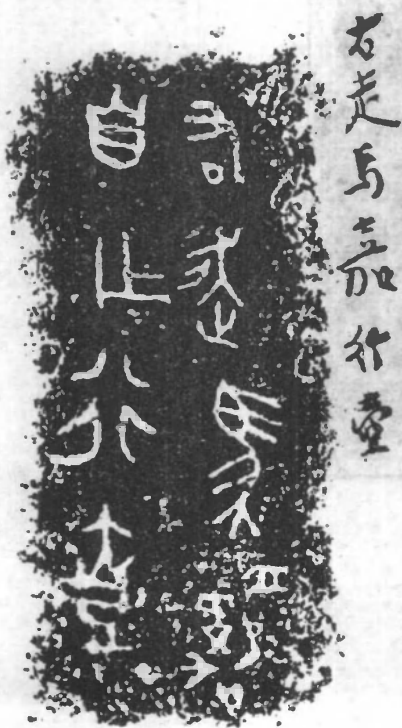 右走马嘉行壺
右走馬嘉
自乍行壺